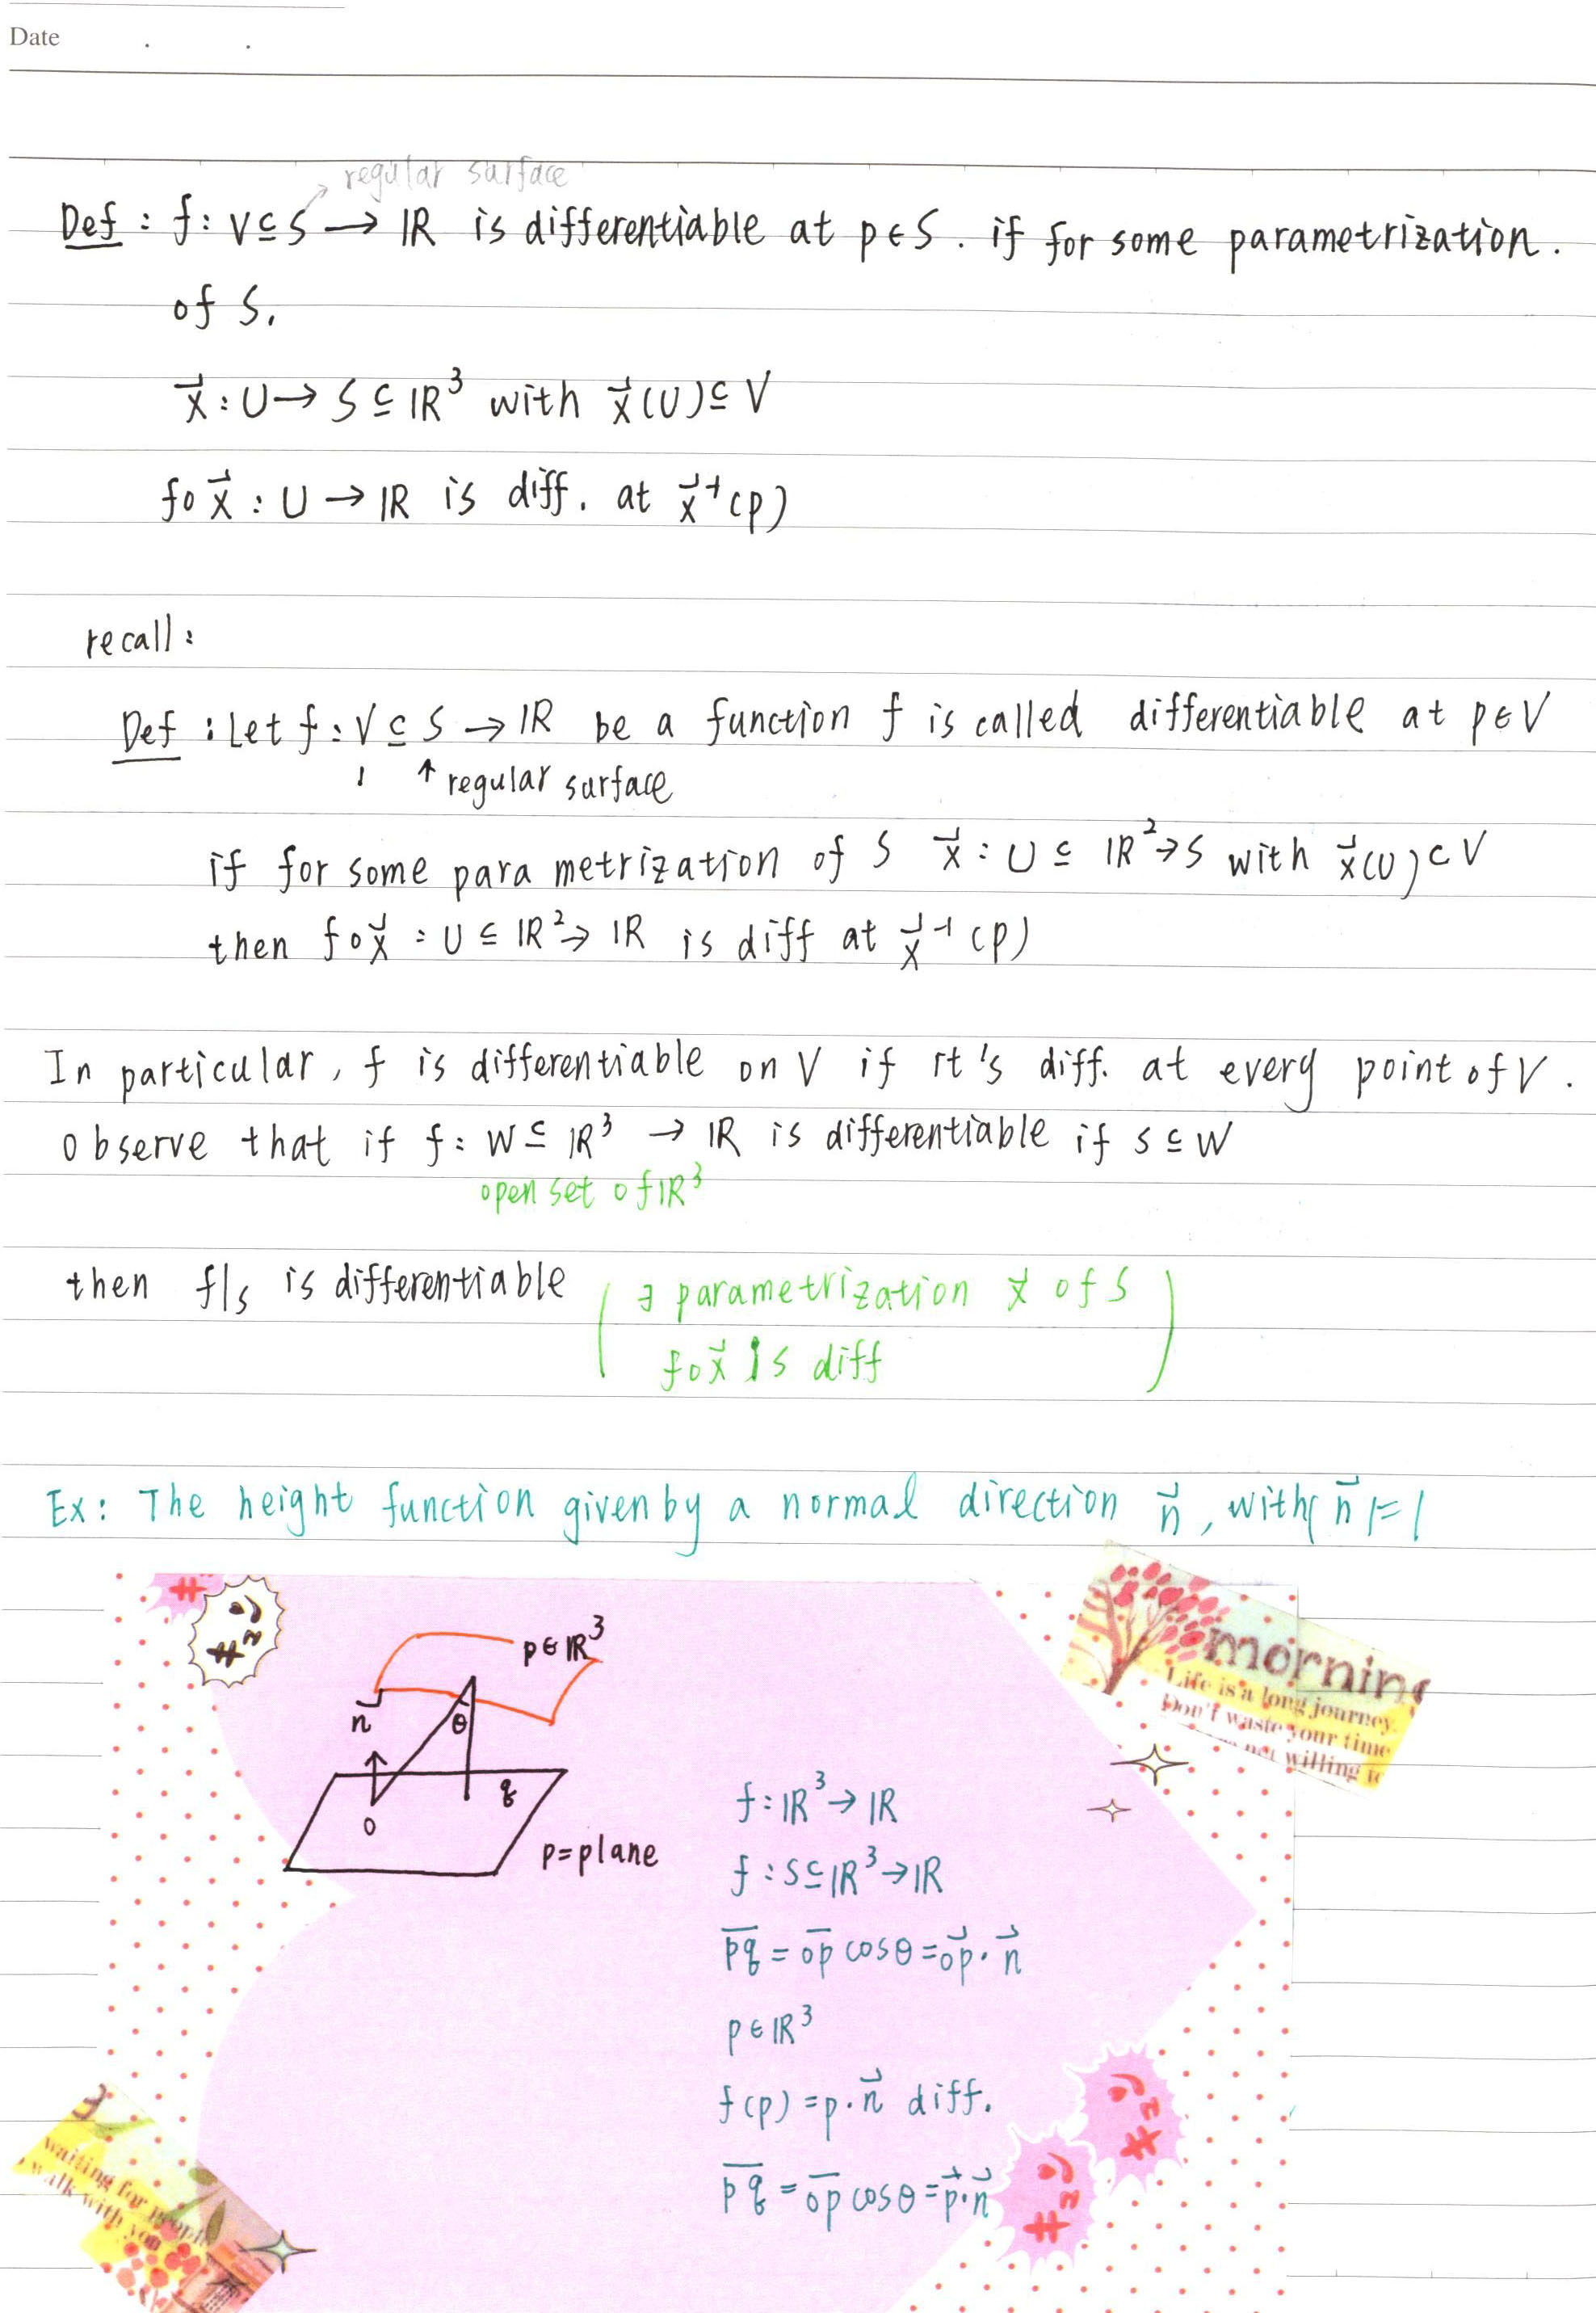 Date . .
regular surface
Def : f : V ⊆ S → ℝ is differentiable at p ∈ S . if for some parametrization .
of S.
x⃗ : U → S ⊆ ℝ³ with x⃗(U) ⊆ V
f∘x⃗ : U → ℝ is diff. at x⃗⁻¹(p)
recall :
Def : Let f : V ⊆ S → ℝ be a function f is called differentiable at p ∈ V
↑ regular surface
if for some parametrization of S x⃗ : U ⊆ ℝ² → S with x⃗(U) ⊂ V
then f∘x⃗ : U ⊆ ℝ² → ℝ is diff at x⃗⁻¹(p)
In particular, f is differentiable on V if it's diff. at every point of V .
observe that if f : W ⊆ ℝ³ → ℝ is differentiable if S ⊆ W
open set of ℝ³
then f|s is differentiable ( ∃ parametrization x⃗ of S
f∘x⃗ is diff )
Ex : The height function given by a normal direction n⃗ , with |n⃗| = 1
p ∈ ℝ³
n⃗
θ
q
o
p = plane
f : ℝ³ → ℝ
f : S ⊆ ℝ³ → ℝ
p̅q̅ = o̅p̅ cosθ = op⃗ · n⃗
p ∈ ℝ³
f(p) = p · n⃗ diff.
p̅q̅ = o̅p̅ cosθ = p⃗ · n⃗
morning
Life is a long journey.
Don't waste your time
not willing to
waiting for people
walk with you